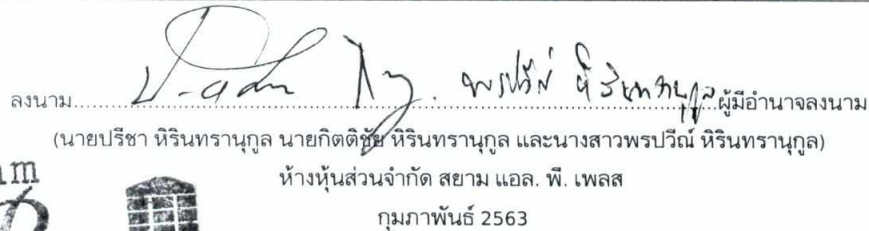 ลงนาม........................................ผู้มีอำนาจลงนาม
(นายปรีชา หิรินทรานุกูล นายกิตติชัย หิรินทรานุกูล และนางสาวพรปวีณ์ หิรินทรานุกูล)
ห้างหุ้นส่วนจำกัด สยาม แอล. พี. เพลส
กุมภาพันธ์ 2563